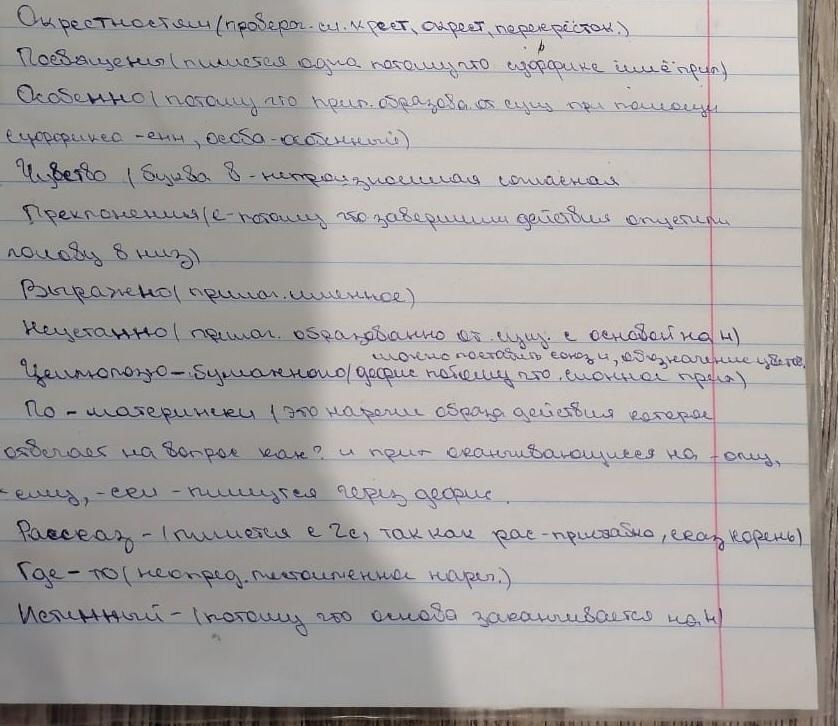 Окрестностям (проверог. сл. крест, окрест, перекрёсток.)
Посвящены (пишется одна потому что суффикс
Особенно (потому что прил. образова. от сущ при помощи
суффикса -енн, особа-особенный)
Чувство (буква в - непроизносимая согласная
Преклонения (е-потому что завершили действия опустили
голову в низ)
Выражено (прилаг.
(прилаг. образованно от. сущ. с основой на н)
можно поставить союз и, обозначение цветов.
-бумажного (дефис потому что. сложное прил)
По - матерински (это наречие образа действия которое
отвечает на вопрос как? и прил оканчивающиеся на -ому,
-ему, -ски - пишутся через дефис.
Рассказ - (пишется с 2с, так как рас-приставка, сказ корень)
Где - то (неопред. местоименное нареч.)
Истинный - (потому что основа заканчивается на н)